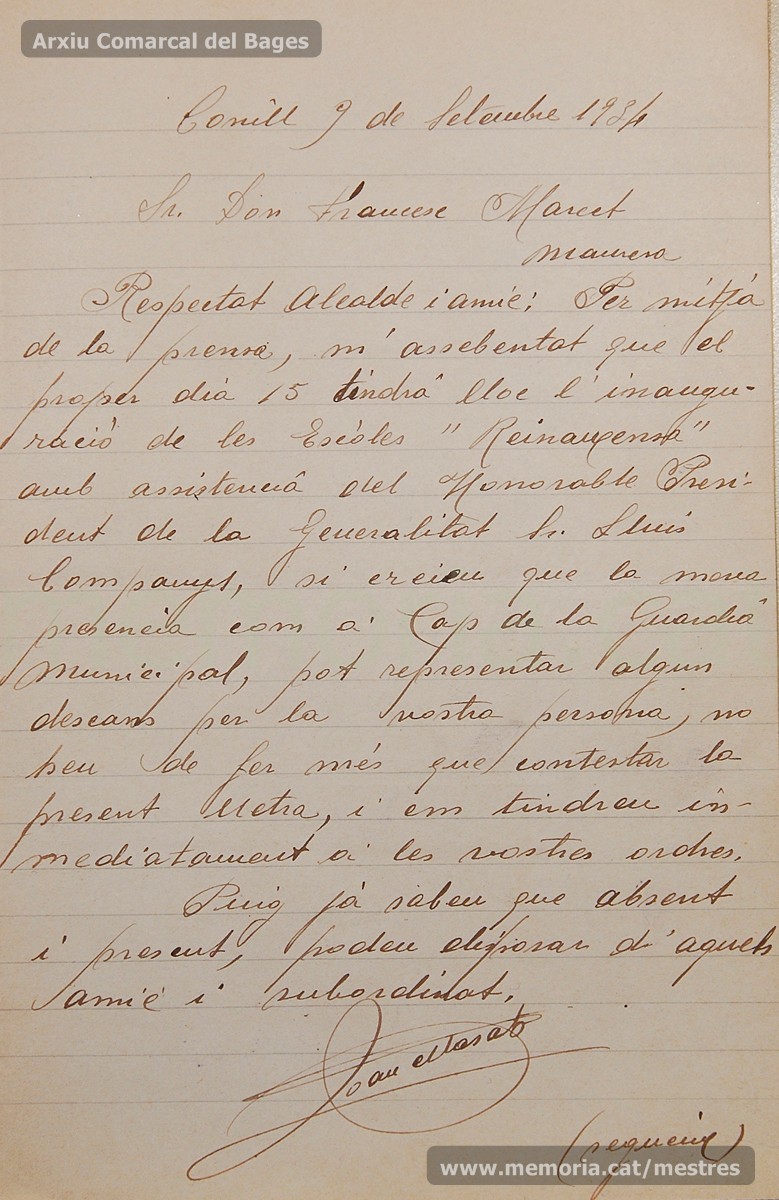 Arxiu Comarcal del Bages
Conill 9 de Setembre 1934
Sr. Don Francesc Marcet
Manresa
Respectat Alcalde i amic; Per mitjà
de la prensa, m'assebentat que el
proper dia 15 tindrà lloc l'inaugu-
ració de les Escòles "Reinaxensa"
amb assistencia del Honorable Presi-
dent de la Generalitat Sr. Lluis
Companys, si creieu que la meva
presencia com a Cap de la Guardia
Municipal, pot representar algun
descans per la vostra persona, no
heu de fer més que contestar la
present lletra, i em tindreu in-
mediatament a les vostres ordres.
Puig jà sabeu que absent
i present, podeu disposar d'aquets
amic i subordinat.
Joan
(segueix)
www.memoria.cat/mestres